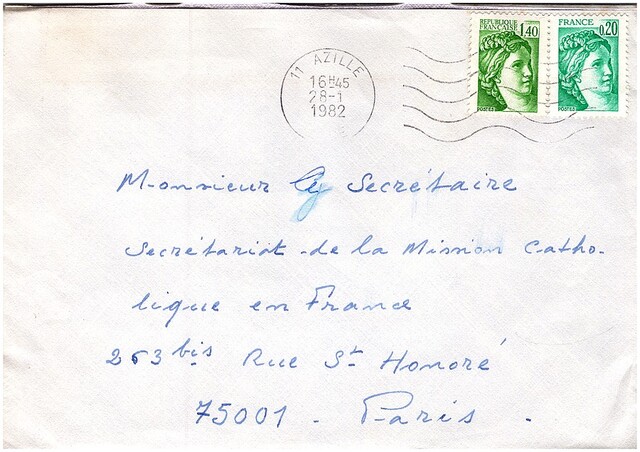 RÉPUBLIQUE
FRANÇAISE
1,40
POSTES
FRANCE
0,20
POSTES
11 AZILLE
16H45
28-1
1982
Monsieur le Secrétaire
Secrétariat de la Mission Catho-
lique en France
263 bis Rue St Honoré
75001 - Paris -